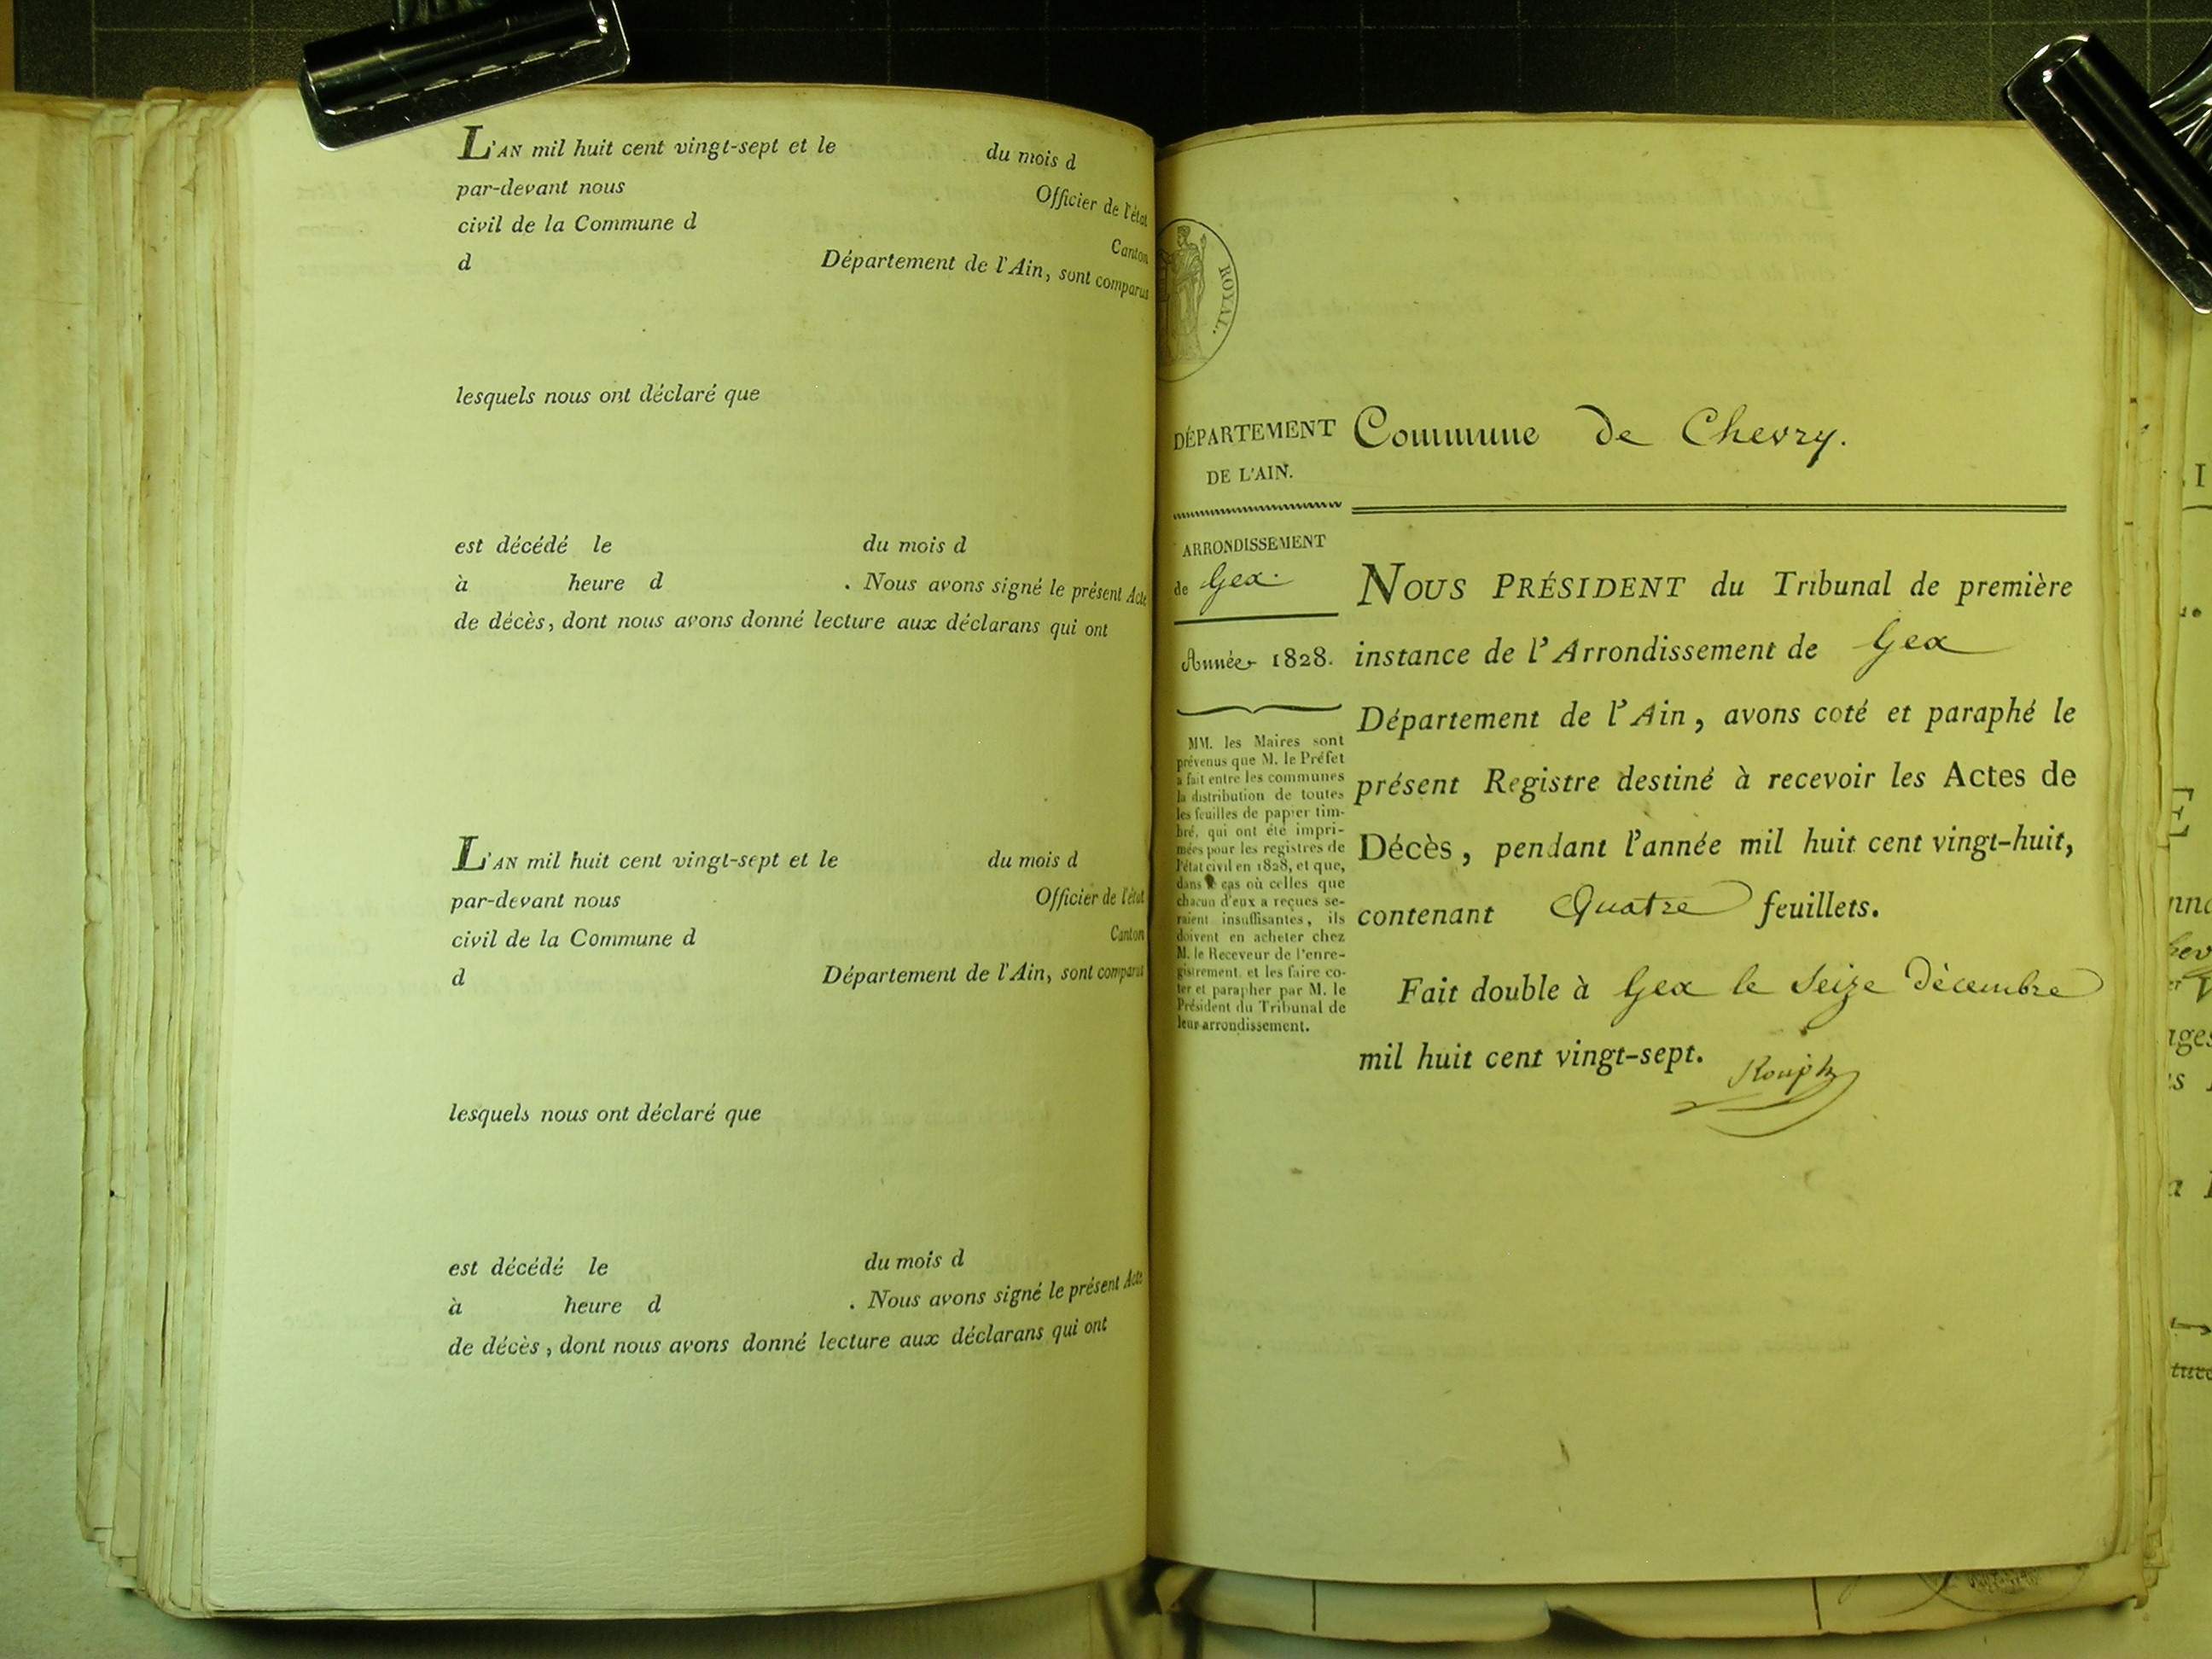 L'AN mil huit cent vingt-sept et le du mois d
par-devant nous Officier de l'état
civil de la Commune d Canton
d Département de l'Ain, sont comparus
lesquels nous ont déclaré que
est décédé le du mois d
à heure d . Nous avons signé le présent Acte
de décès, dont nous avons donné lecture aux déclarans qui ont
L'AN mil huit cent vingt-sept et le du mois d
par-devant nous Officier de l'état
civil de la Commune d Canton
d Département de l'Ain, sont comparus
lesquels nous ont déclaré que
est décédé le du mois d
à heure d . Nous avons signé le présent Acte
de décès, dont nous avons donné lecture aux déclarans qui ont
ROYAL.
DÉPARTEMENT
DE L'AIN.
ARRONDISSEMENT
de Gex.
Année 1828.
MM. les Maires sont
prévenus que M. le Préfet
a fait entre les communes
la distribution de toutes
les feuilles de papier tim-
bré, qui ont été impri-
mées pour les registres de
l'état civil en 1828, et que,
dans le cas où celles que
chacun d'eux a reçues se-
raient insuffisantes, ils
doivent en acheter chez
M. le Receveur de l'enre-
gistrement, et les faire co-
ter et parapher par M. le
Président du Tribunal de
leur arrondissement.
Commune de Chevry.
NOUS PRÉSIDENT du Tribunal de première
instance de l'Arrondissement de Gex
Département de l'Ain, avons coté et paraphé le
présent Registre destiné à recevoir les Actes de
Décès, pendant l'année mil huit cent vingt-huit,
contenant Quatre feuillets.
Fait double à Gex le Seize Décembre
mil huit cent vingt-sept.